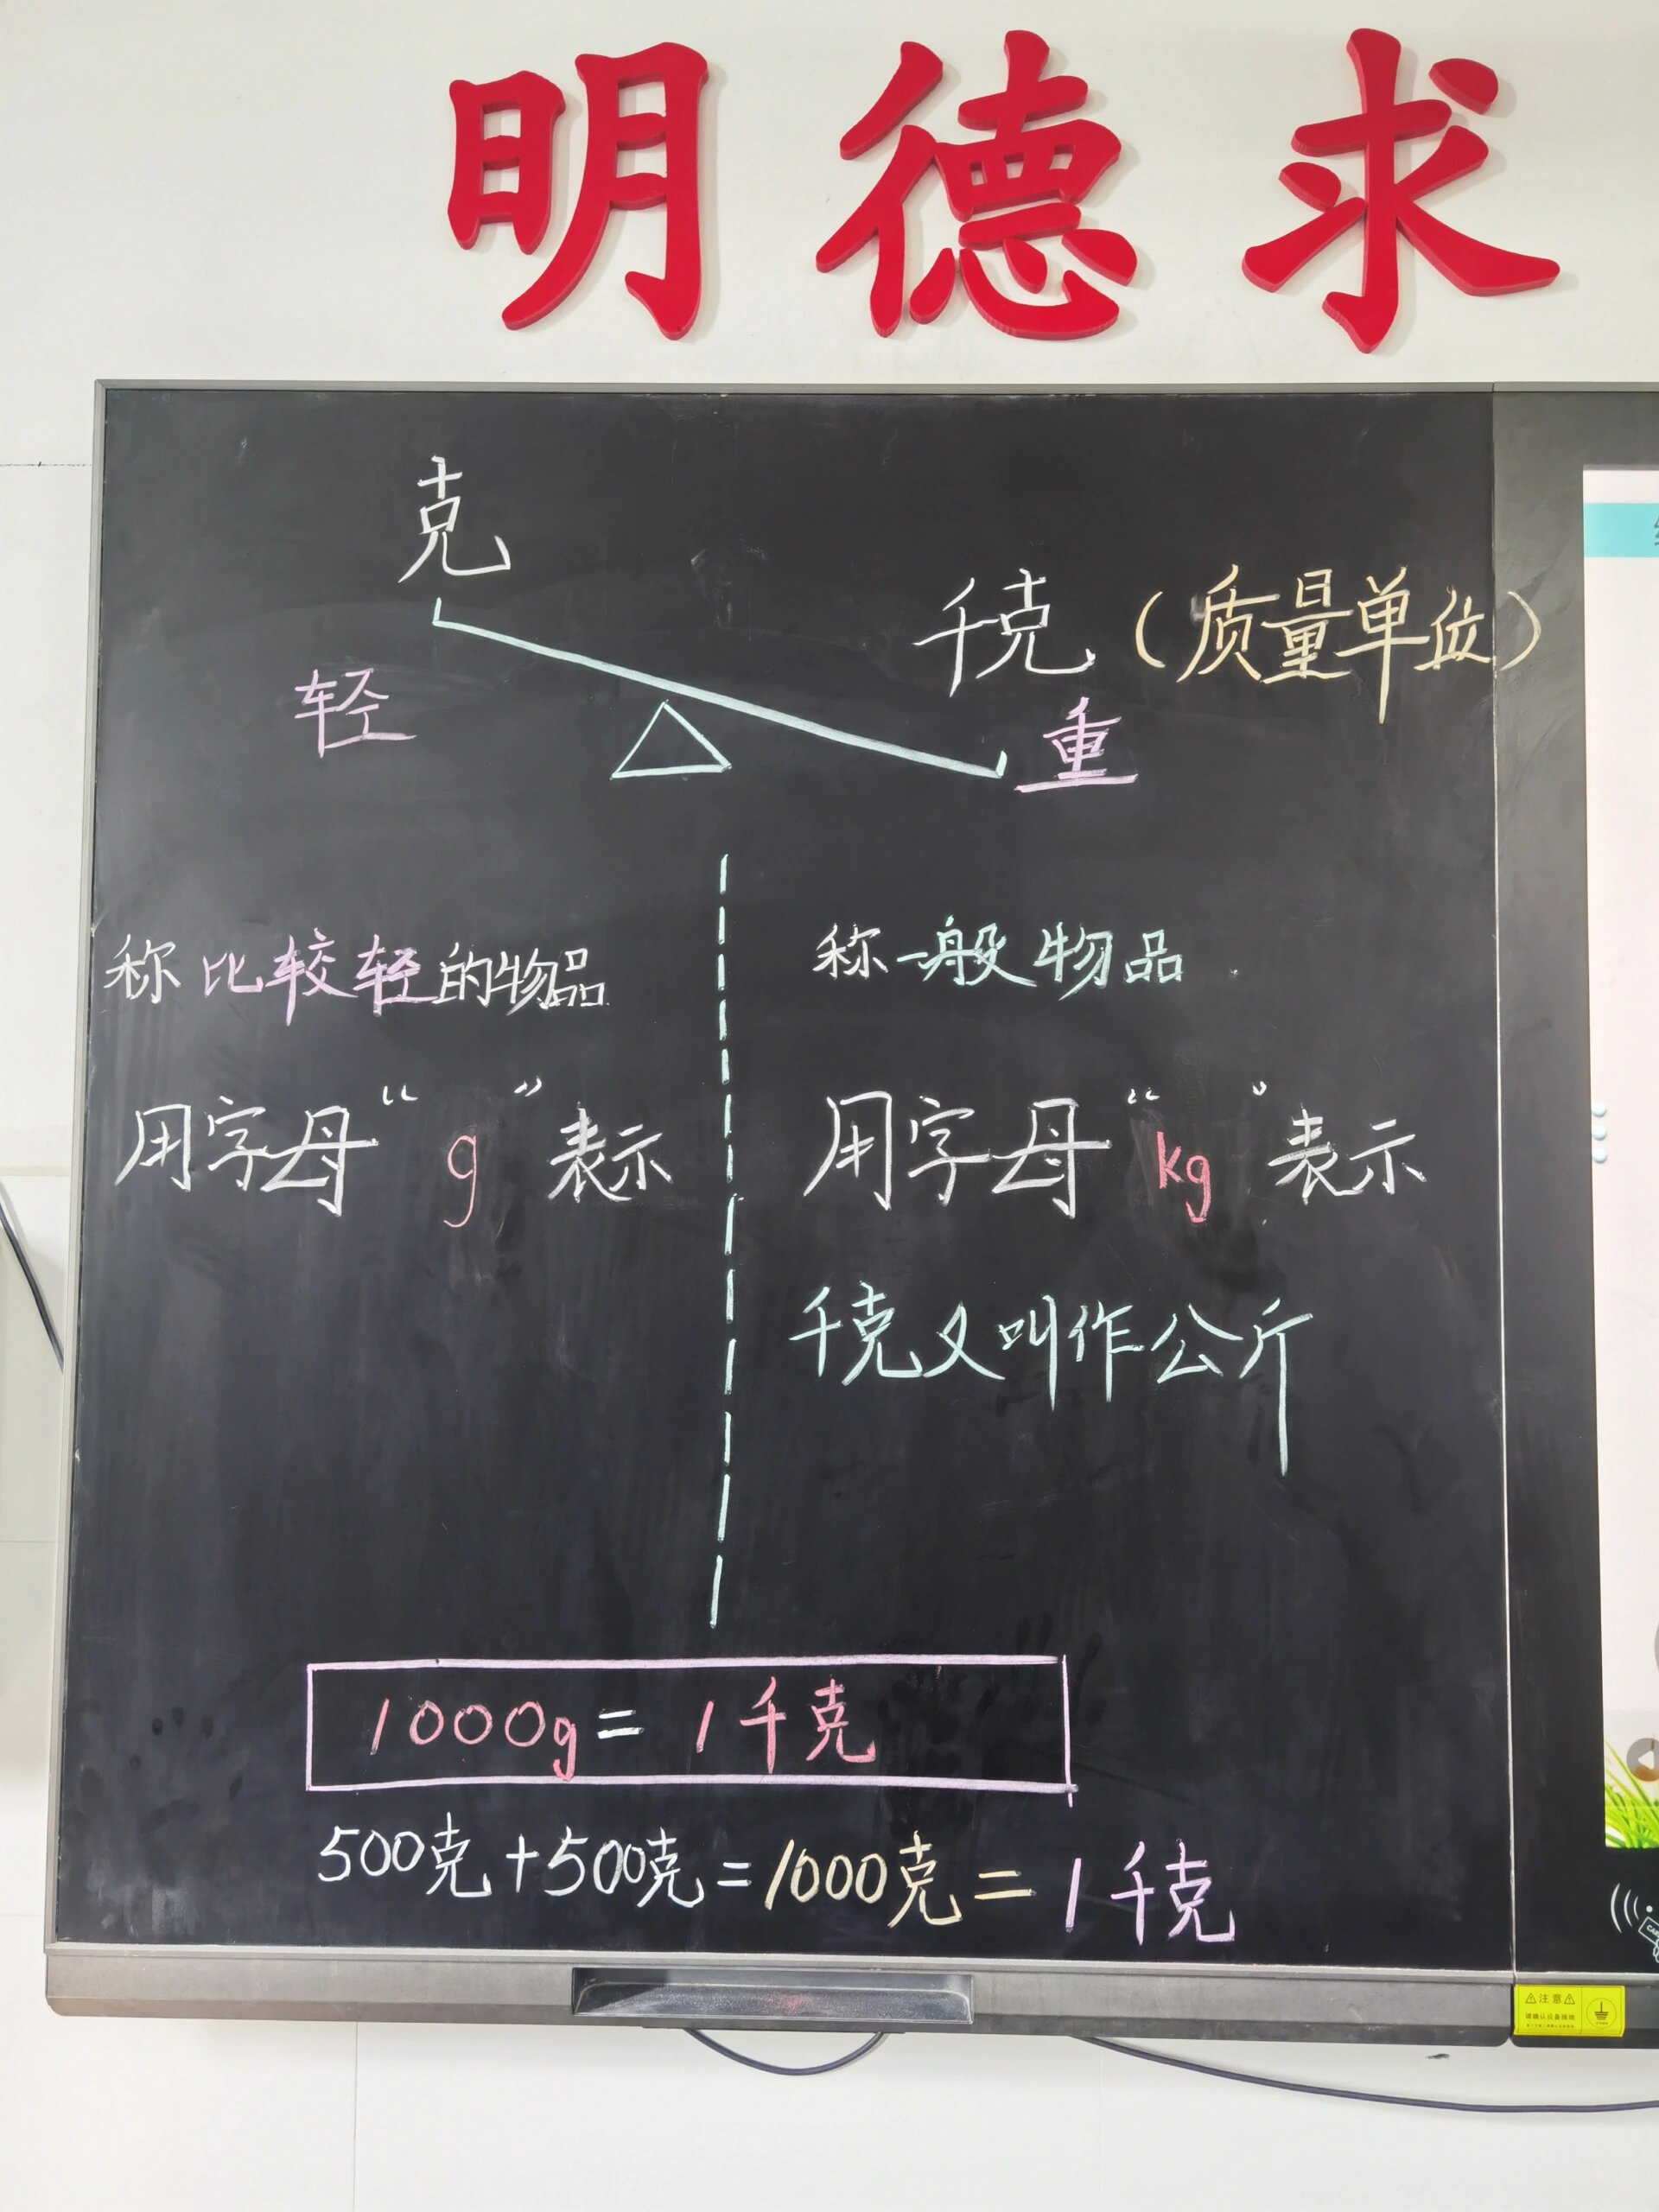 明德求
克
千克（质量单位）
轻
重
称比较轻的物品
称一般物品
用字母“g”表示
用字母“kg”表示
千克又叫作公斤
1000g=1千克
500克+500克=1000克=1千克
注意
请确认设备接地